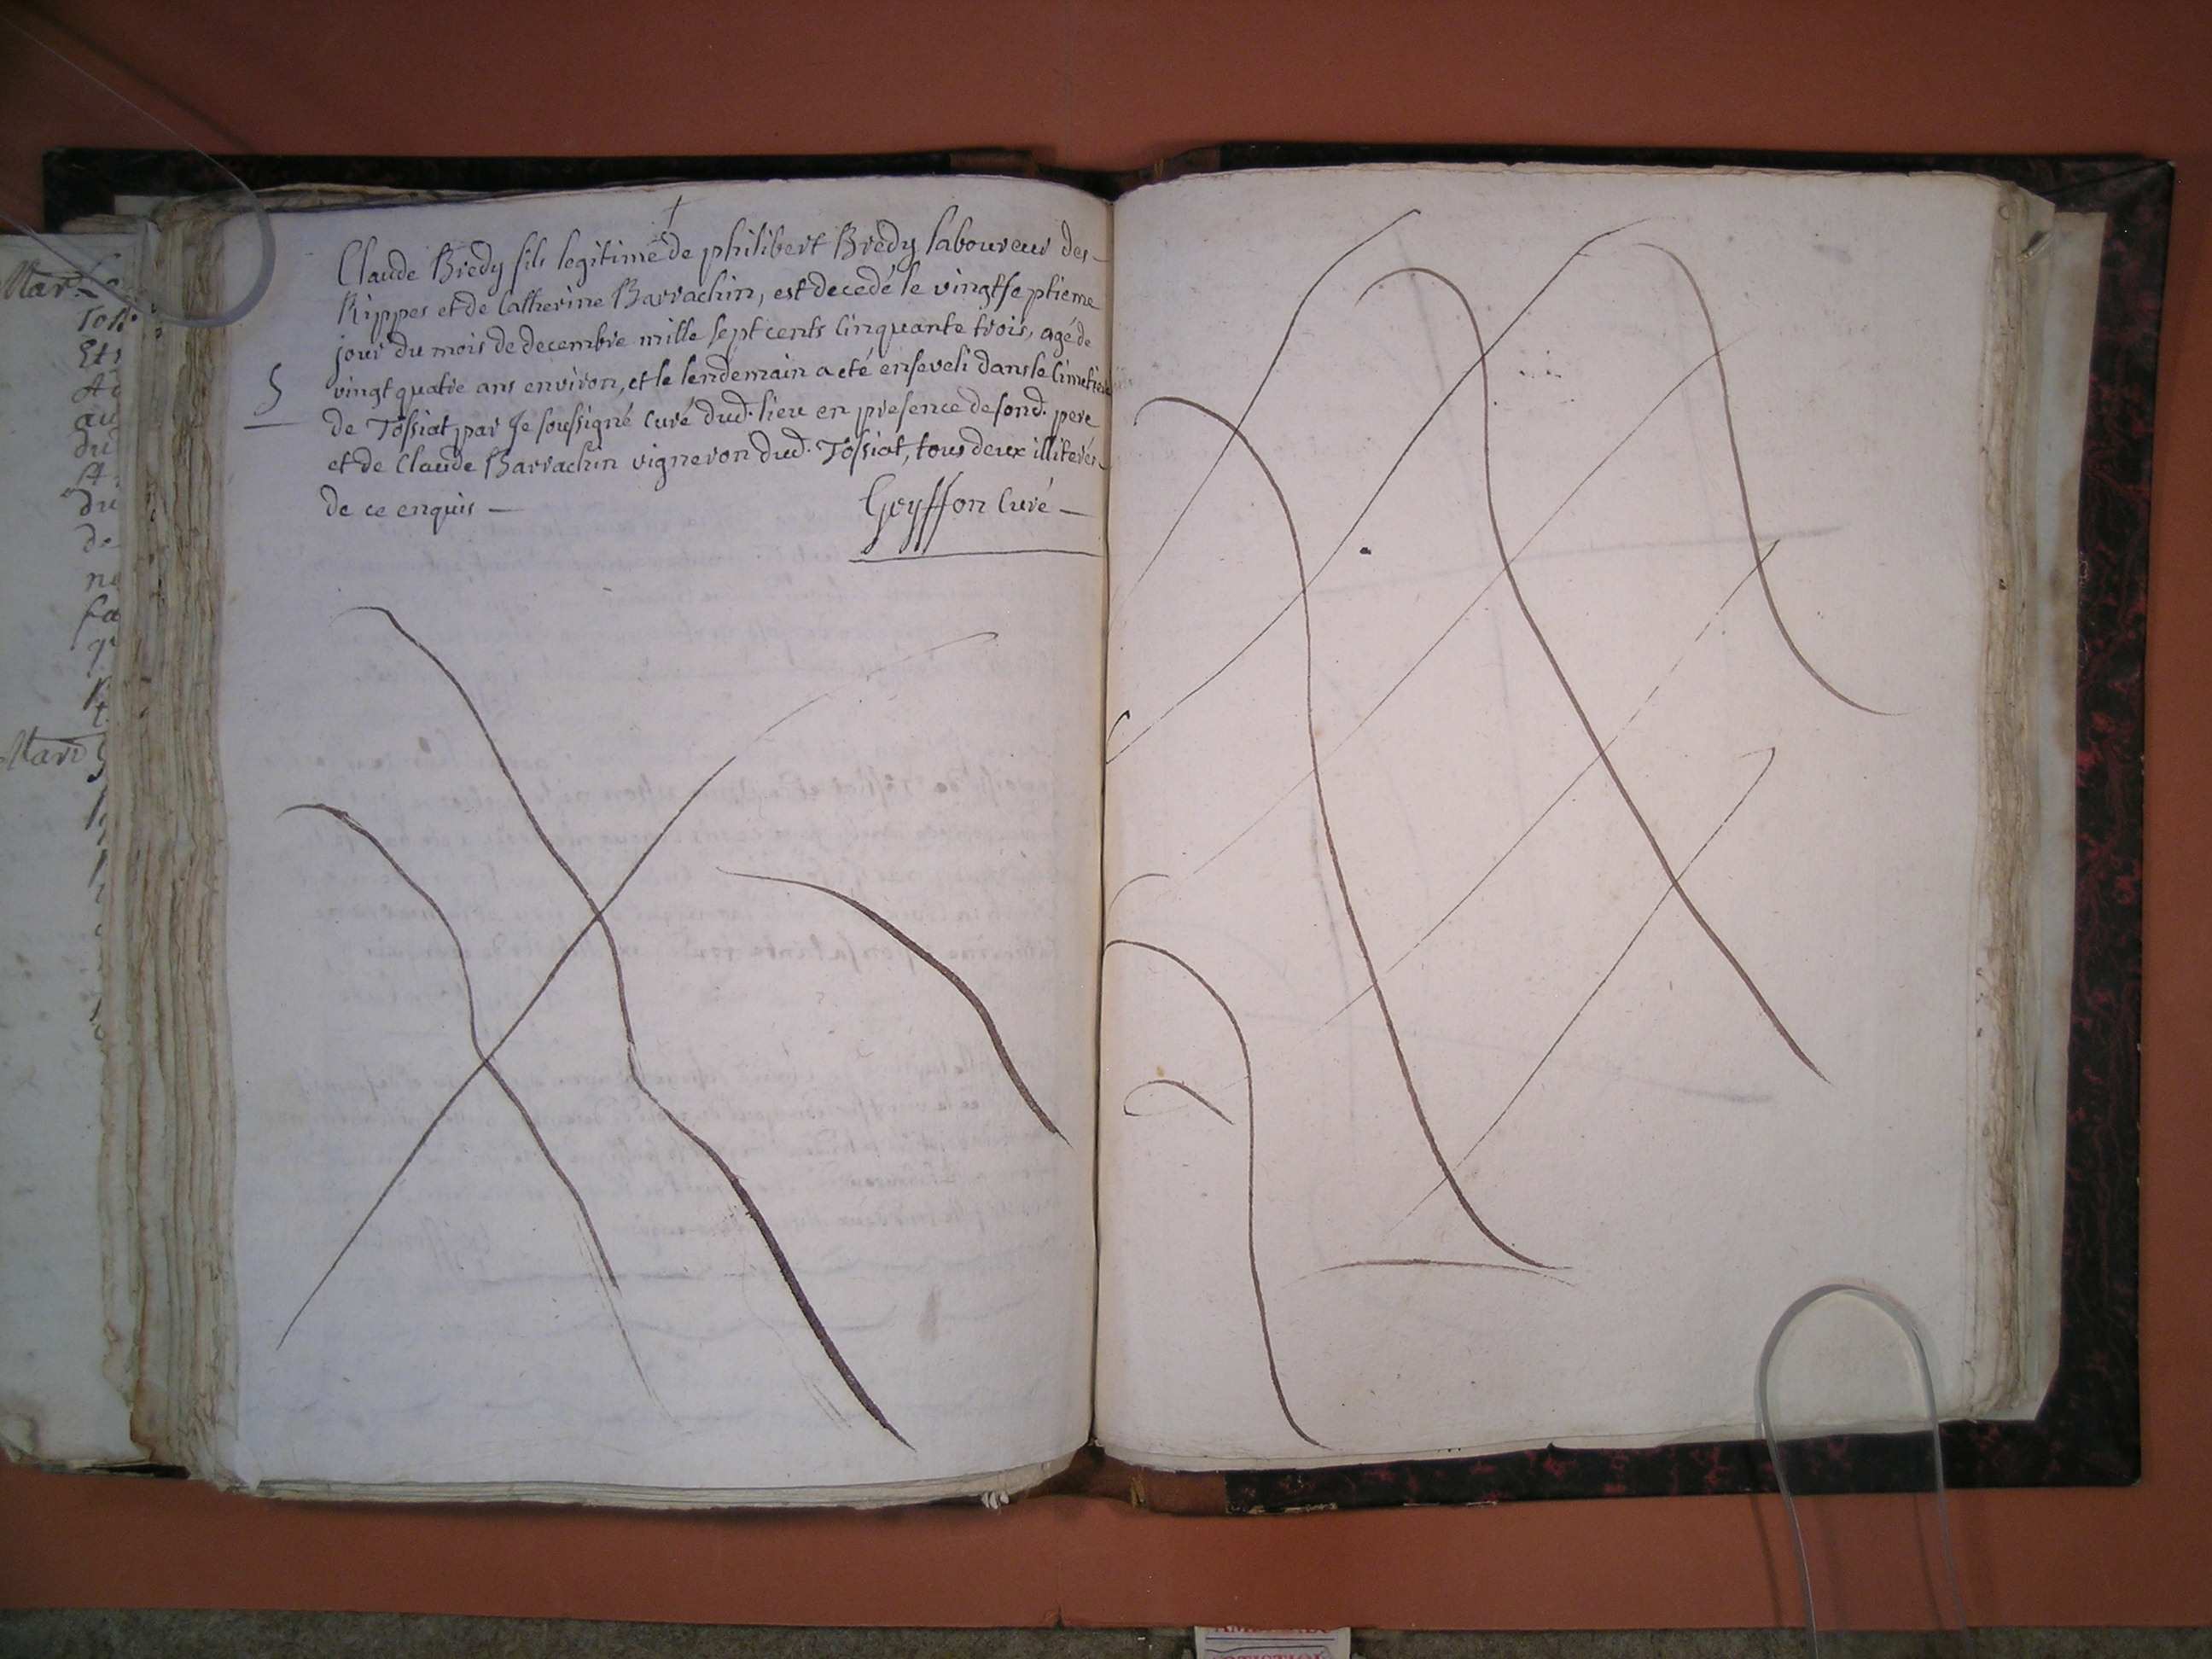 †
Claude Bredy fils legitime de philibert Bredy laboureur des
Rippes et de Catherine Barrachin, est decedé le vingt septieme
jour du mois de decembre mille sept cents cinquante trois, agé de
vingt quatre ans environ, et le lendemain a eté enseveli dans le Cimetiere
S
de Tossiat par Je soussigné Curé dud. lieu en presence de sond. pere
et de Claude Barrachin vigneron dud. Tossiat, tous deux illiterés
de ce enquis — Geyffon Curé —
Mar.
Toss
Et
au
du
du
de
fa
Mari